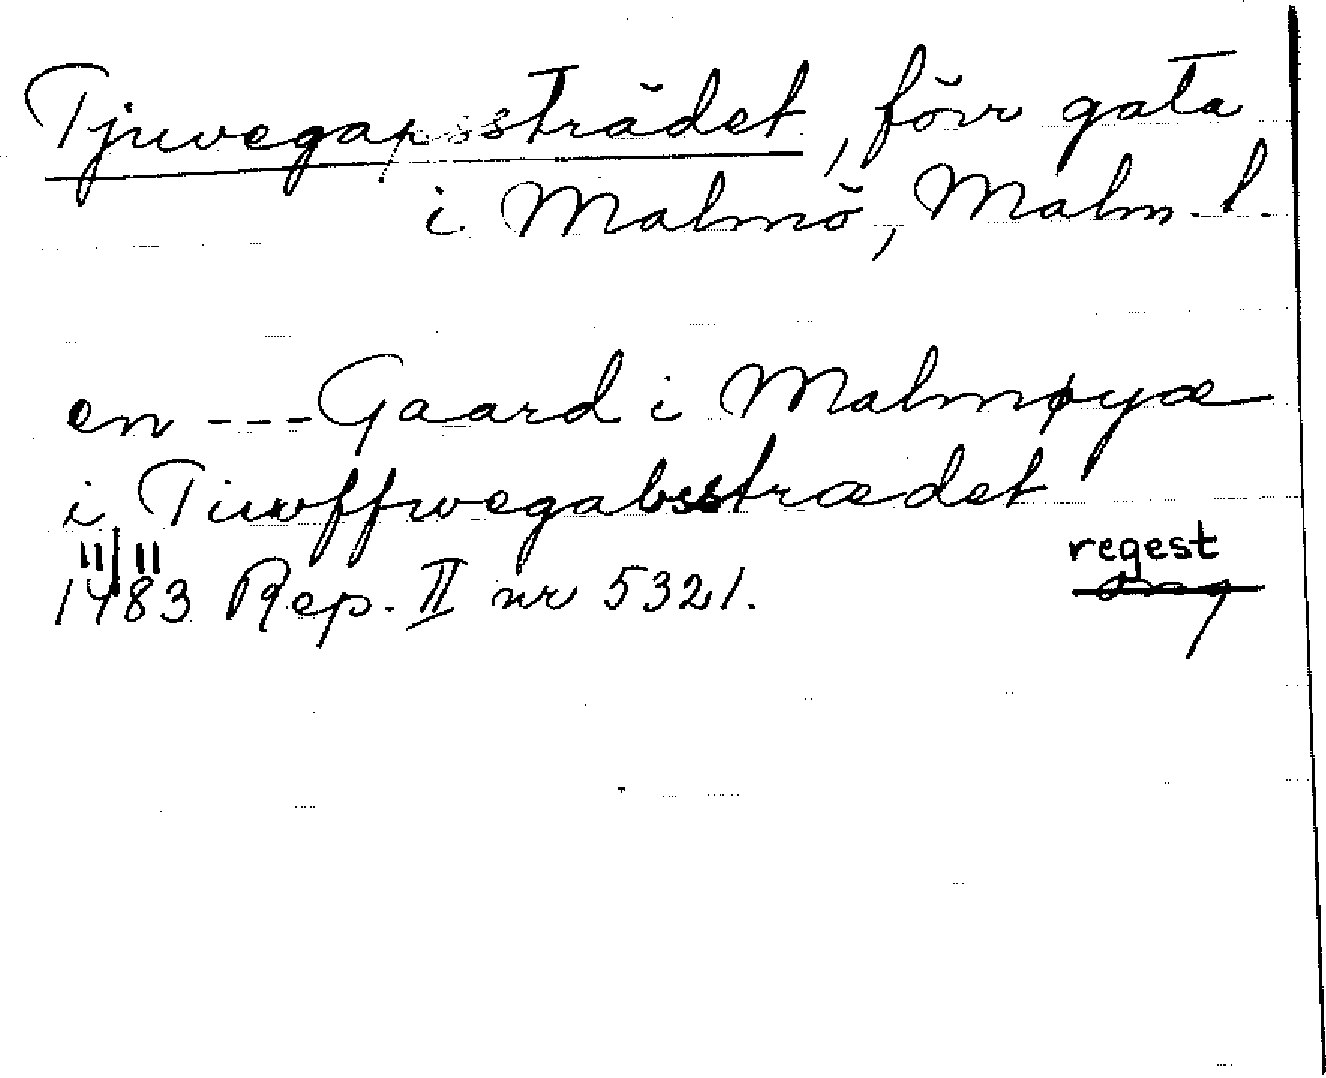 Tjuvegapssträdet, förr gata
i Malmö, Malm. l.
en --- Gaard i Malmøyæ
i Tiuwffwegabsstrædet
11/11
1483 Rep. II nr 5321.
regest